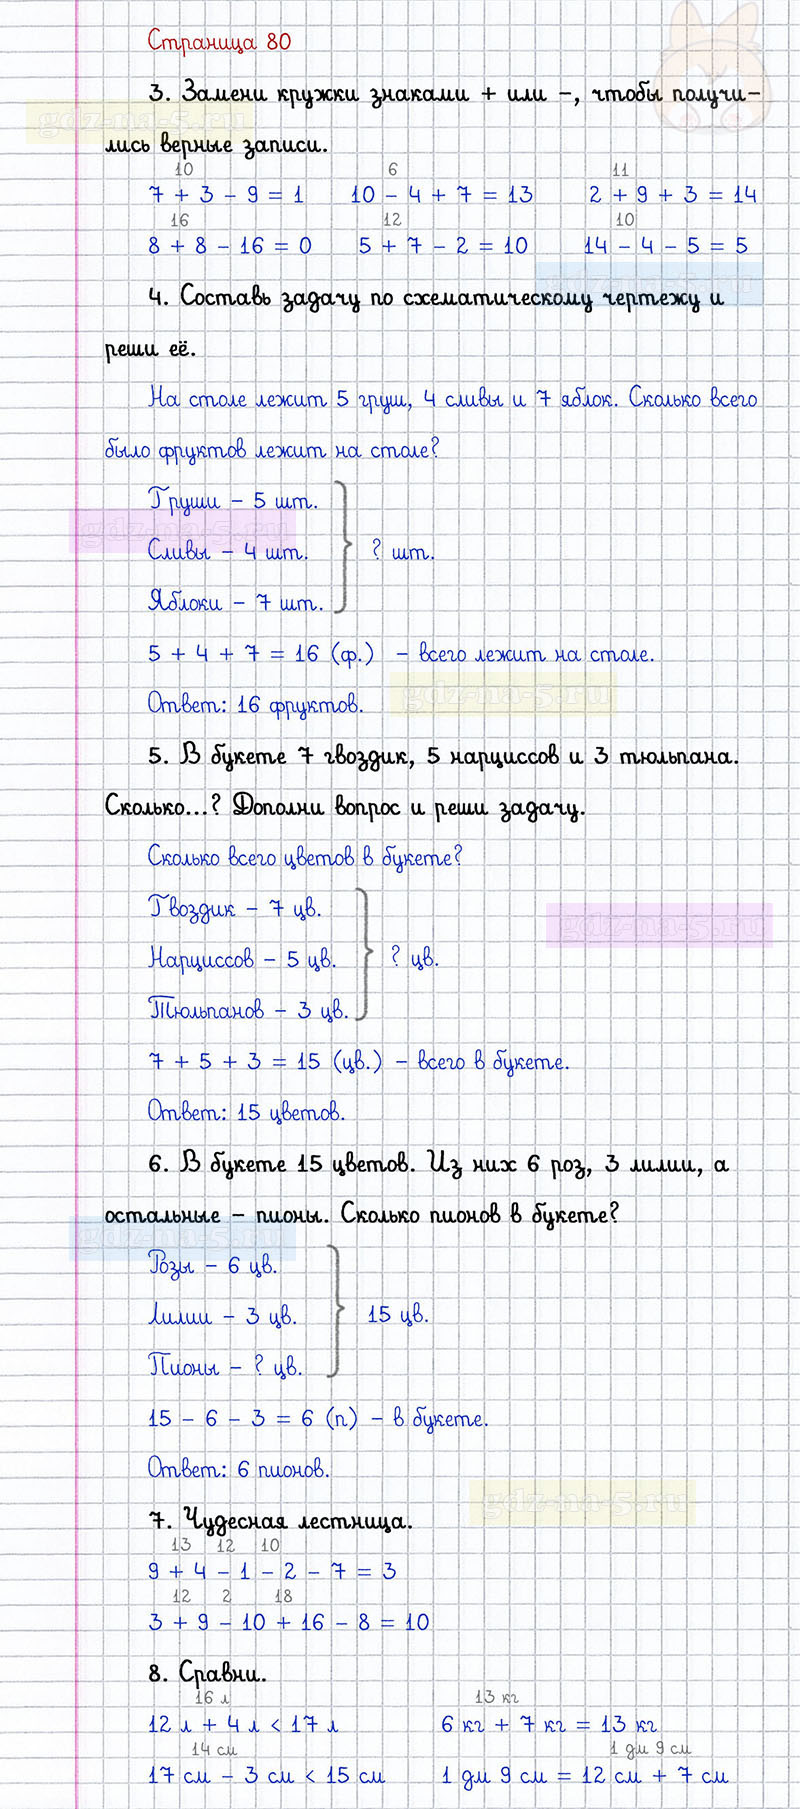 Страница 80
3. Замени кружки знаками + или -, чтобы получи-
gdz-na-5.ru
лись верные записи.
10 6 11
7 + 3 - 9 = 1 10 - 4 + 7 = 13 2 + 9 + 3 = 14
16 12 10
8 + 8 - 16 = 0 5 + 7 - 2 = 10 14 - 4 - 5 = 5
gdz-na-5.ru
4. Составь задачу по схематическому чертежу и
реши её.
На столе лежит 5 груш, 4 сливы и 7 яблок. Сколько всего
было фруктов лежит на столе?
Груши - 5 шт.
gdz-na-5.ru
Сливы - 4 шт. ? шт.
Яблоки - 7 шт.
5 + 4 + 7 = 16 (ф.) - всего лежит на столе.
gdz-na-5.ru
Ответ: 16 фруктов.
5. В букете 7 гвоздик, 5 нарциссов и 3 тюльпана.
Сколько...? Дополни вопрос и реши задачу.
Сколько всего цветов в букете?
Гвоздик - 7 цв.
gdz-na-5.ru
Нарциссов - 5 цв. ? цв.
Тюльпанов - 3 цв.
7 + 5 + 3 = 15 (цв.) - всего в букете.
Ответ: 15 цветов.
6. В букете 15 цветов. Из них 6 роз, 3 лилии, а
остальные - пионы. Сколько пионов в букете?
gdz-na-5.ru
Розы - 6 цв.
Лилии - 3 цв. 15 цв.
Пионы - ? цв.
15 - 6 - 3 = 6 (п) - в букете.
Ответ: 6 пионов.
gdz-na-5.ru
7. Чудесная лестница.
13 12 10
9 + 4 - 1 - 2 - 7 = 3
12 2 18
3 + 9 - 10 + 16 - 8 = 10
8. Сравни.
16 л 13 кг
12 л + 4 л < 17 л 6 кг + 7 кг = 13 кг
14 см 1 дм 9 см
17 см - 3 см < 15 см 1 дм 9 см = 12 см + 7 см